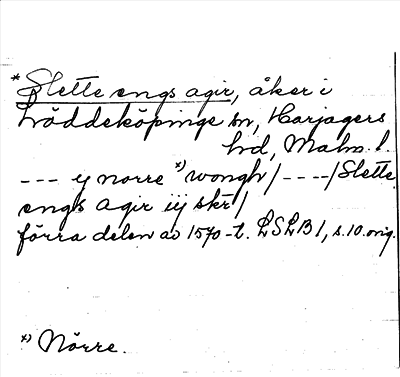 * Slette engs agir, åker i
Löddeköpinge sn, Harjagers
hd, Malm. l.
--- ij norre x) wongh / ---- / Slette
engs agir iij skr /
förra delen av 1570-t. LSLB 1, s. 10. orig.
x) Nörre.